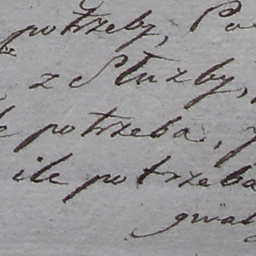 potrzeby, Po
z Służby,
potrzeba,
ile potrzeba
gwał